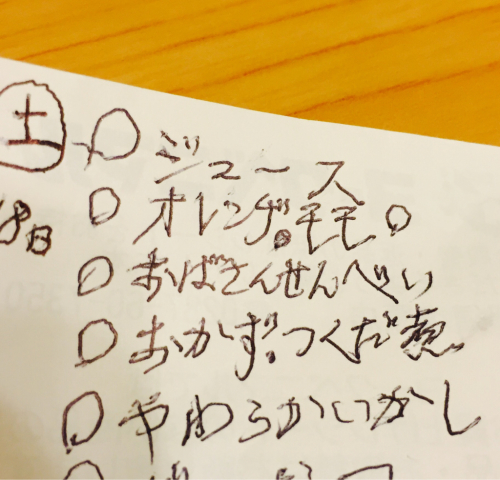 土 〇 ジュース
〇 オレンヂ。モモ。〇
8日
〇 おばさんせんべい
〇 おかず。つくだ煮
〇 やわらかいかし